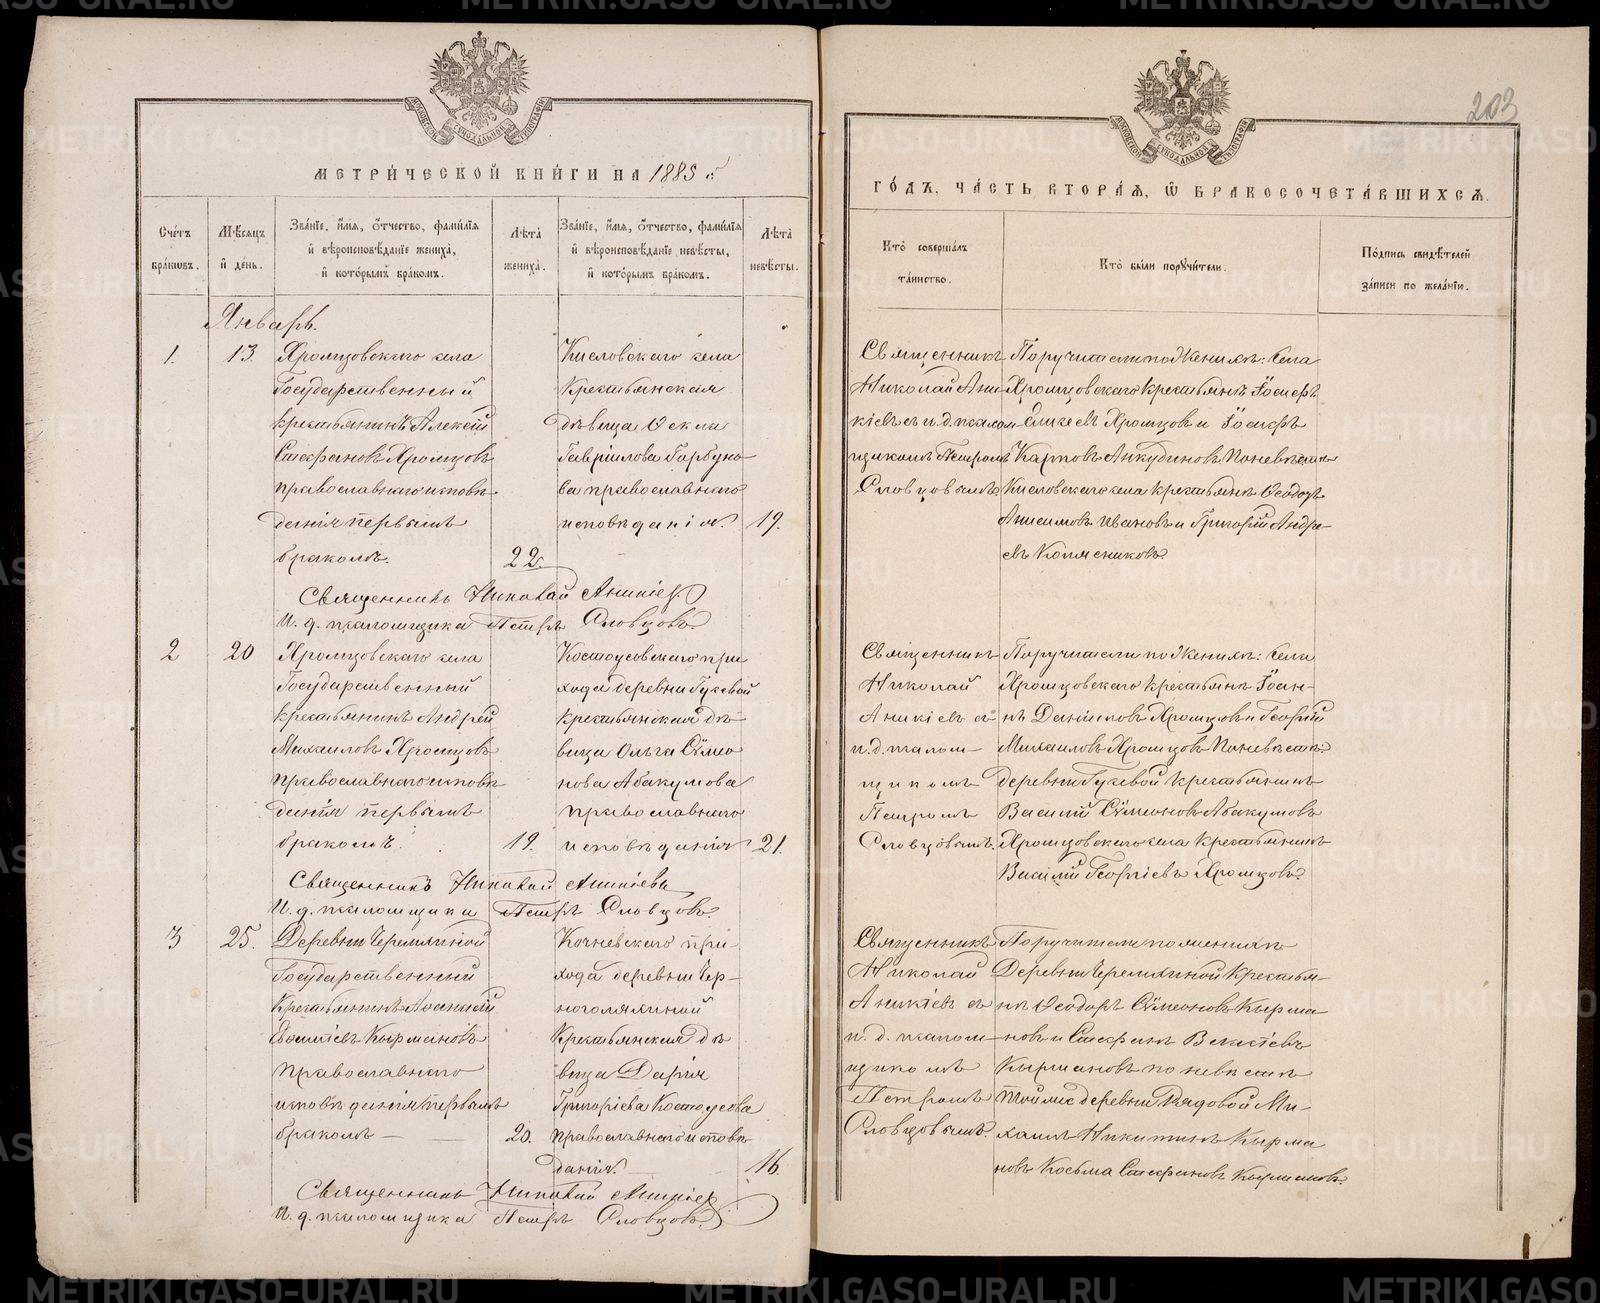 МЕТРИЧЕСКОЙ КНИГИ НА 1885 г.
Счетъ браковъ.
Мѣсяцъ и день.
Званіе, имя, отчество, фамилія и вѣроисповѣданіе жениха, и которымъ бракомъ.
Лѣта жениха.
Званіе, имя, отчество, фамилія и вѣроисповѣданіе невѣсты, и которымъ бракомъ.
Лѣта невѣсты.
Январь.
1. 13.
Хромцовскаго села
Государственный
крестьянинъ Алексій
Стефановъ Хромцовъ
православнаго исповѣ
данія первымъ
бракомъ.
22.
Кисловскаго села
Крестьянская
дѣвица Ѳекла
Гавріилова Горбуно
ва православнаго
исповѣданія.
19.
Священникъ Николай Аникіев
И. д. псаломщика Петръ Словцовъ.
2 20
Хромцовскаго села
Государственный
крестьянинъ Андрей
Михаиловъ Хромцовъ
православнаго исповѣ
данія первымъ
бракомъ.
19.
Костоусовскаго при
хода деревни Гуквой
крестьянская дѣ
вица Ольга Сѵмео
нова Абакумова
православнаго
исповѣданія
21.
Священникъ Николай Аникіевъ
И. д. псаломщика Петръ Словцовъ.
3 25.
Деревни Черемхиной
Государственный
Крестьянинъ
Кырмановъ
православнаго
исповѣданія первымъ
бракомъ
20.
Кочневскаго при-
хода деревни Чер-
Крестьянская дѣ
вица Дарія
Григоріева Костоусова
православнаго исповѣ
данія.
16.
Священникъ Николай Аникіев
И. д. псаломщика Петръ Словцовъ.
203
ГОДЪ, ЧАСТЬ ВТОРАЯ, Ѽ БРАКОСОЧЕТАВШИХСЯ.
Кто совершалъ таинство.
Кто были поручители.
Подпись свидѣтелей записи по желанію.
Священникъ
Николай Ани
кіевъ съ и. д. псалом-
щикомъ Петромъ
Словцовымъ.
Поручители по женихѣ: Села
Хромцовскаго Крестьянъ Іосифъ
Елисеевъ Хромцовъ и Іосифъ
Карповъ Анкудиновъ По невѣстѣ
Кисловскаго села крестьянъ Ѳеодоръ
Анисимовъ Ивановъ и Григорій Андре-
евъ Колясниковъ.
Священникъ
Николай
Аникіевъ съ
и. д. псалом-
щикомъ
Петромъ
Словцовымъ.
Поручители по женихѣ: Села
Хромцовскаго крестьянъ Іоан-
нъ Даниловъ Хромцовъ и Георгій
Михаиловъ Хромцовъ По невѣстѣ:
деревни Гуквой крестьянинъ
Василій Сѵмеоновъ Абакумовъ
Хромцовскаго села крестьянинъ
Василій Георгіевъ Хромцовъ.
Священникъ
Николай
Аникіевъ съ
и. д. псалом
щикомъ
Петромъ
Словцовымъ.
Поручители по женихѣ
Деревни Черемхиной Крестья-
нъ Ѳеодоръ Сѵмеоновъ Кырма
новъ и Стефанъ
Кырмановъ по невѣстѣ
тойже деревни Ми-
хаилъ Никитинъ Кырма
новъ Косьма Стефановъ Кырмановъ.
METRIKI.GASO-URAL.RU